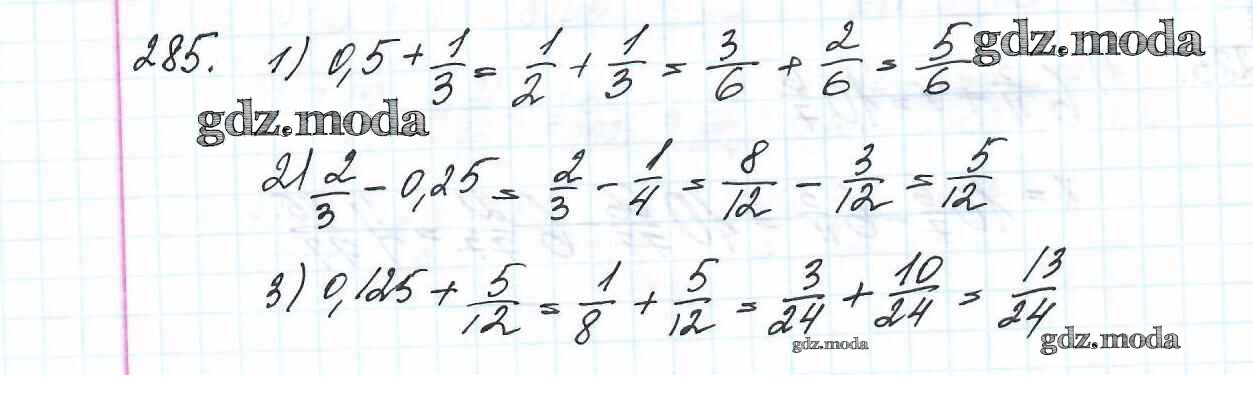 285. 1) 0,5 + 1/3 = 1/2 + 1/3 = 3/6 + 2/6 = 5/6 gdz.moda
gdz.moda
2) 2/3 - 0,25 = 2/3 - 1/4 = 8/12 - 3/12 = 5/12
3) 0,125 + 5/12 = 1/8 + 5/12 = 3/24 + 10/24 = 13/24
gdz.moda gdz.moda